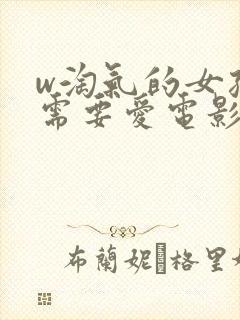 w淘氣的女
需要愛電影
布蘭妮 格里